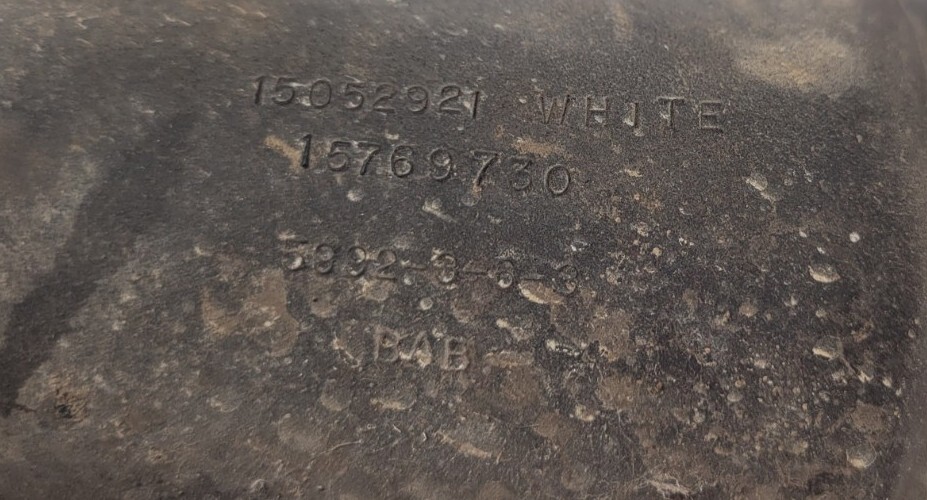 15052921 WHITE
15769730
5892-3-3-3
BAB